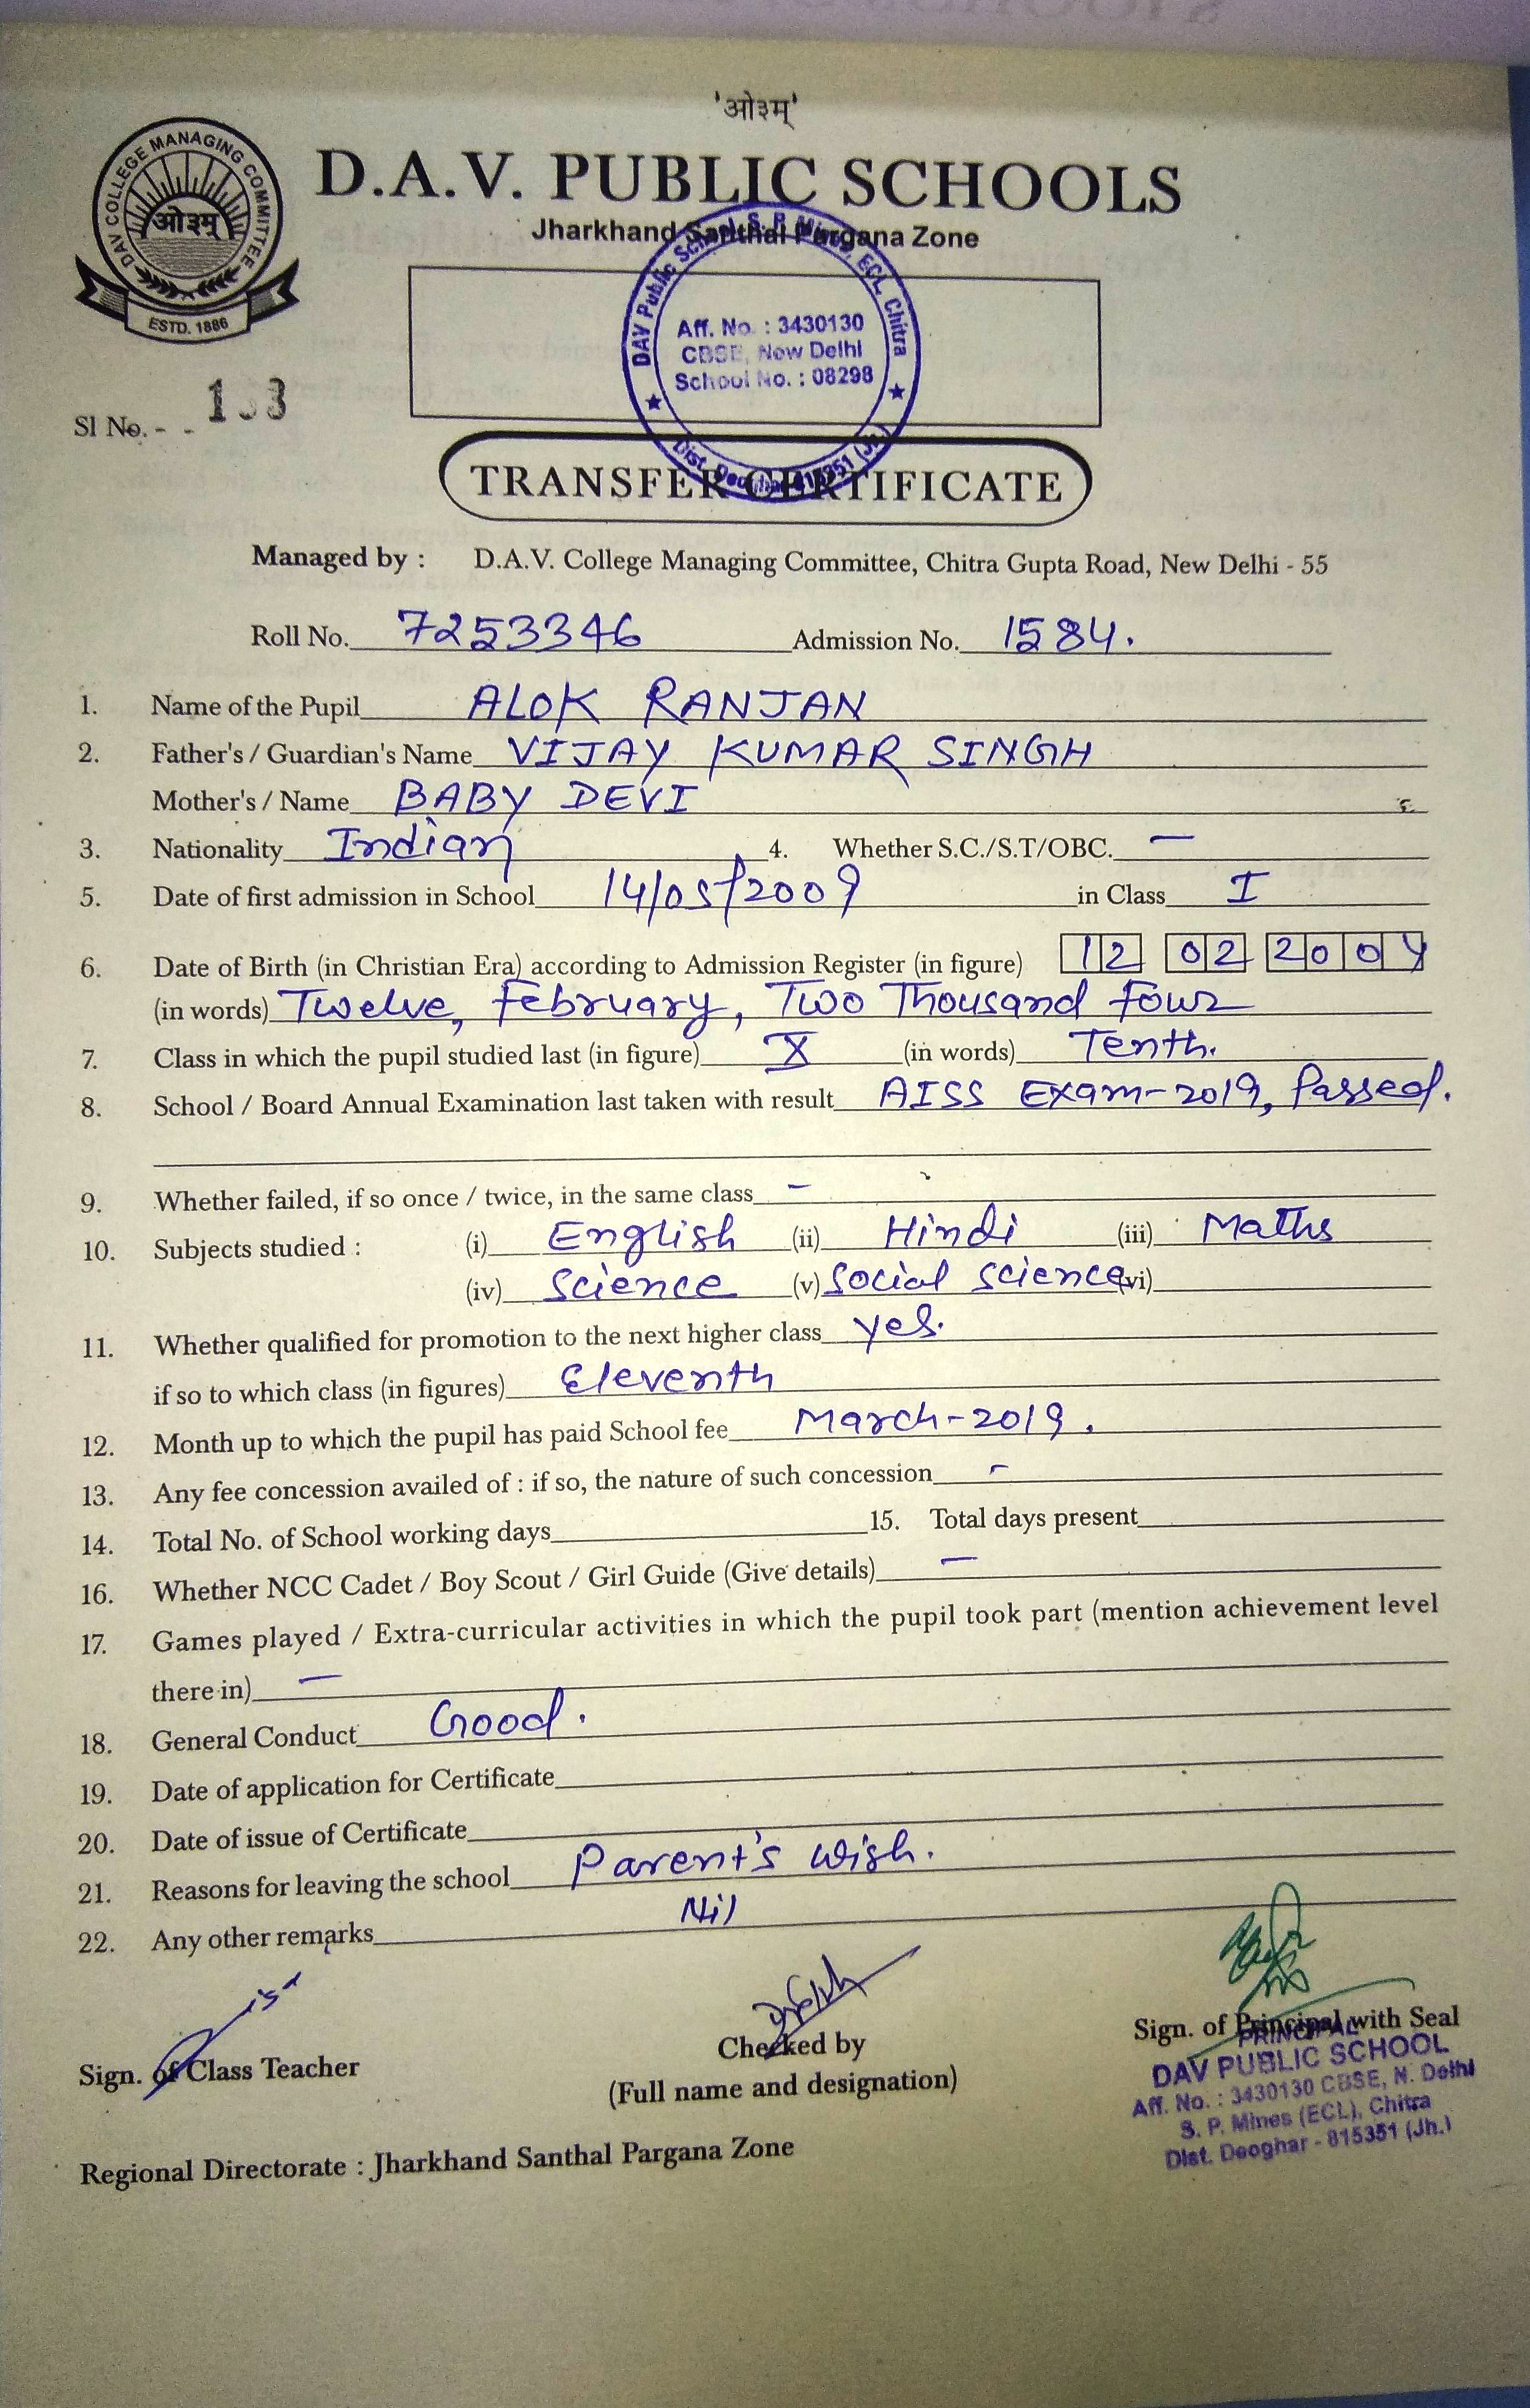 'ओ३म्'
DAV COLLEGE MANAGING COMMITTEE
ओ३म्
ESTD. 1886
D.A.V. PUBLIC SCHOOLS
Jharkhand Santhal Pargana Zone
DAV Public School, S. P. Mines, ECL, Chitra
Aff. No. : 3430130
CBSE, New Delhi
School No. : 08298
Dist. Deoghar 815351 (Jh.)
Sl No. - -
TRANSFER CERTIFICATE
Managed by : D.A.V. College Managing Committee, Chitra Gupta Road, New Delhi - 55
Roll No. 7253346 Admission No. 1584.
1. Name of the Pupil ALOK RANJAN
2. Father's / Guardian's Name VIJAY KUMAR SINGH
Mother's / Name BABY DEVI
3. Nationality Indian 4. Whether S.C./S.T/OBC. —
5. Date of first admission in School 14/05/2009 in Class I
6. Date of Birth (in Christian Era) according to Admission Register (in figure) 12 02 2004
(in words) Twelve, February, Two Thousand Four
7. Class in which the pupil studied last (in figure) X (in words) Tenth.
8. School / Board Annual Examination last taken with result AISS Exam-2019, Passed.
9. Whether failed, if so once / twice, in the same class –
10. Subjects studied : (i) English (ii) Hindi (iii) Maths
(iv) Science (v) Social Science (vi)
11. Whether qualified for promotion to the next higher class yes.
if so to which class (in figures) Eleventh
12. Month up to which the pupil has paid School fee March-2019.
13. Any fee concession availed of : if so, the nature of such concession –
14. Total No. of School working days 15. Total days present
16. Whether NCC Cadet / Boy Scout / Girl Guide (Give details) —
17. Games played / Extra-curricular activities in which the pupil took part (mention achievement level
there in) —
18. General Conduct Good.
19. Date of application for Certificate
20. Date of issue of Certificate
21. Reasons for leaving the school Parent's wish.
22. Any other remarks Nil
Sign. of Class Teacher
Checked by
(Full name and designation)
Sign. of Principal with Seal
PRINCIPAL
DAV PUBLIC SCHOOL
Aff. No. : 3430130 CBSE, N. Delhi
S. P. Mines (ECL), Chitra
Dist. Deoghar - 815351 (Jh.)
Regional Directorate : Jharkhand Santhal Pargana Zone